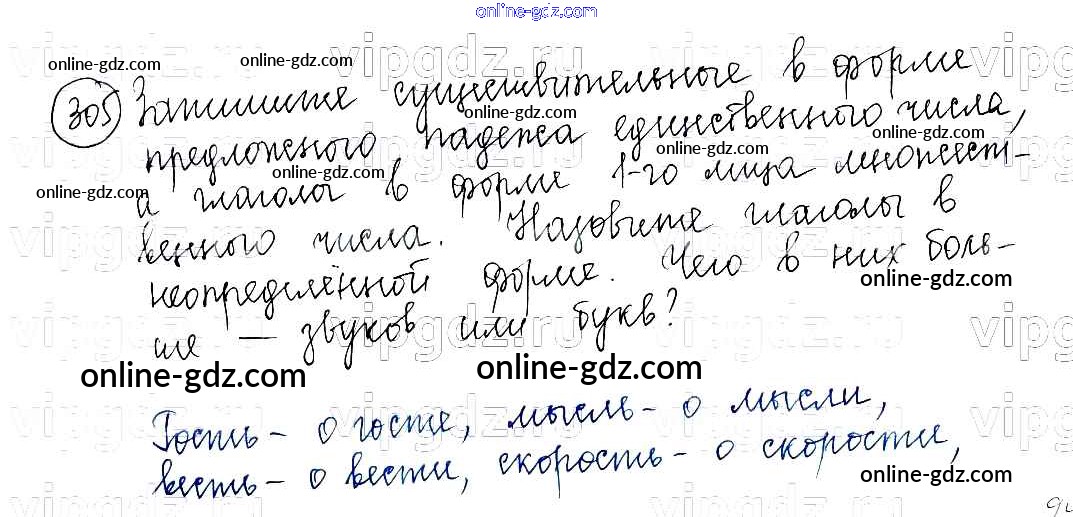 online-gdz.com
vipgdz.ru vipgdz.ru vipgdz.ru vipg
online-gdz.com online-gdz.com online-gdz.com
305 Запишите существительные в форме
предложного падежа единственного числа,
online-gdz.com online-gdz.com online-gdz.com
а глаголы в форме 1-го лица множест-
online-gdz.com online-gdz.com online-gdz.com
венного числа. Назовите глаголы в
неопределённой форме. Чего в них боль-
online-gdz.com
ше — звуков или букв?
online-gdz.com online-gdz.com
Гость - о госте, мысль - о мысли,
весть - о вести, скорость - о скорости,